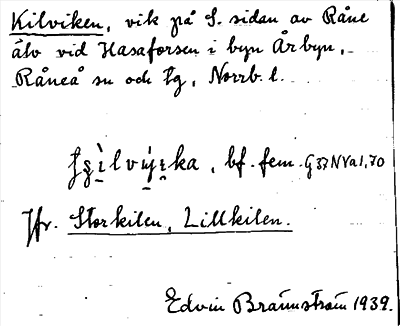 Kilviken, vik på S. sidan av Råne
älv vid Hasaforsen i byn Årbyn,
Råneå sn och tg, Norrb. l.
bf. fem. G37NVa1,70
Jfr. Storkilen, Lillkilen.
Edvin Brännström 1939.